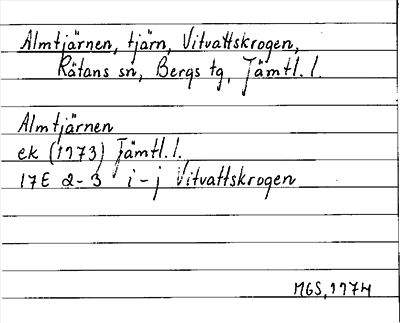 Almtjärnen, tjärn, Vitvattskrogen,
Rätans sn, Bergs tg, Jämtl. l.
Almtjärnen
ek (1973) Jämtl. l.
17E 2-3 i-j Vitvattskrogen
MGS, 1974